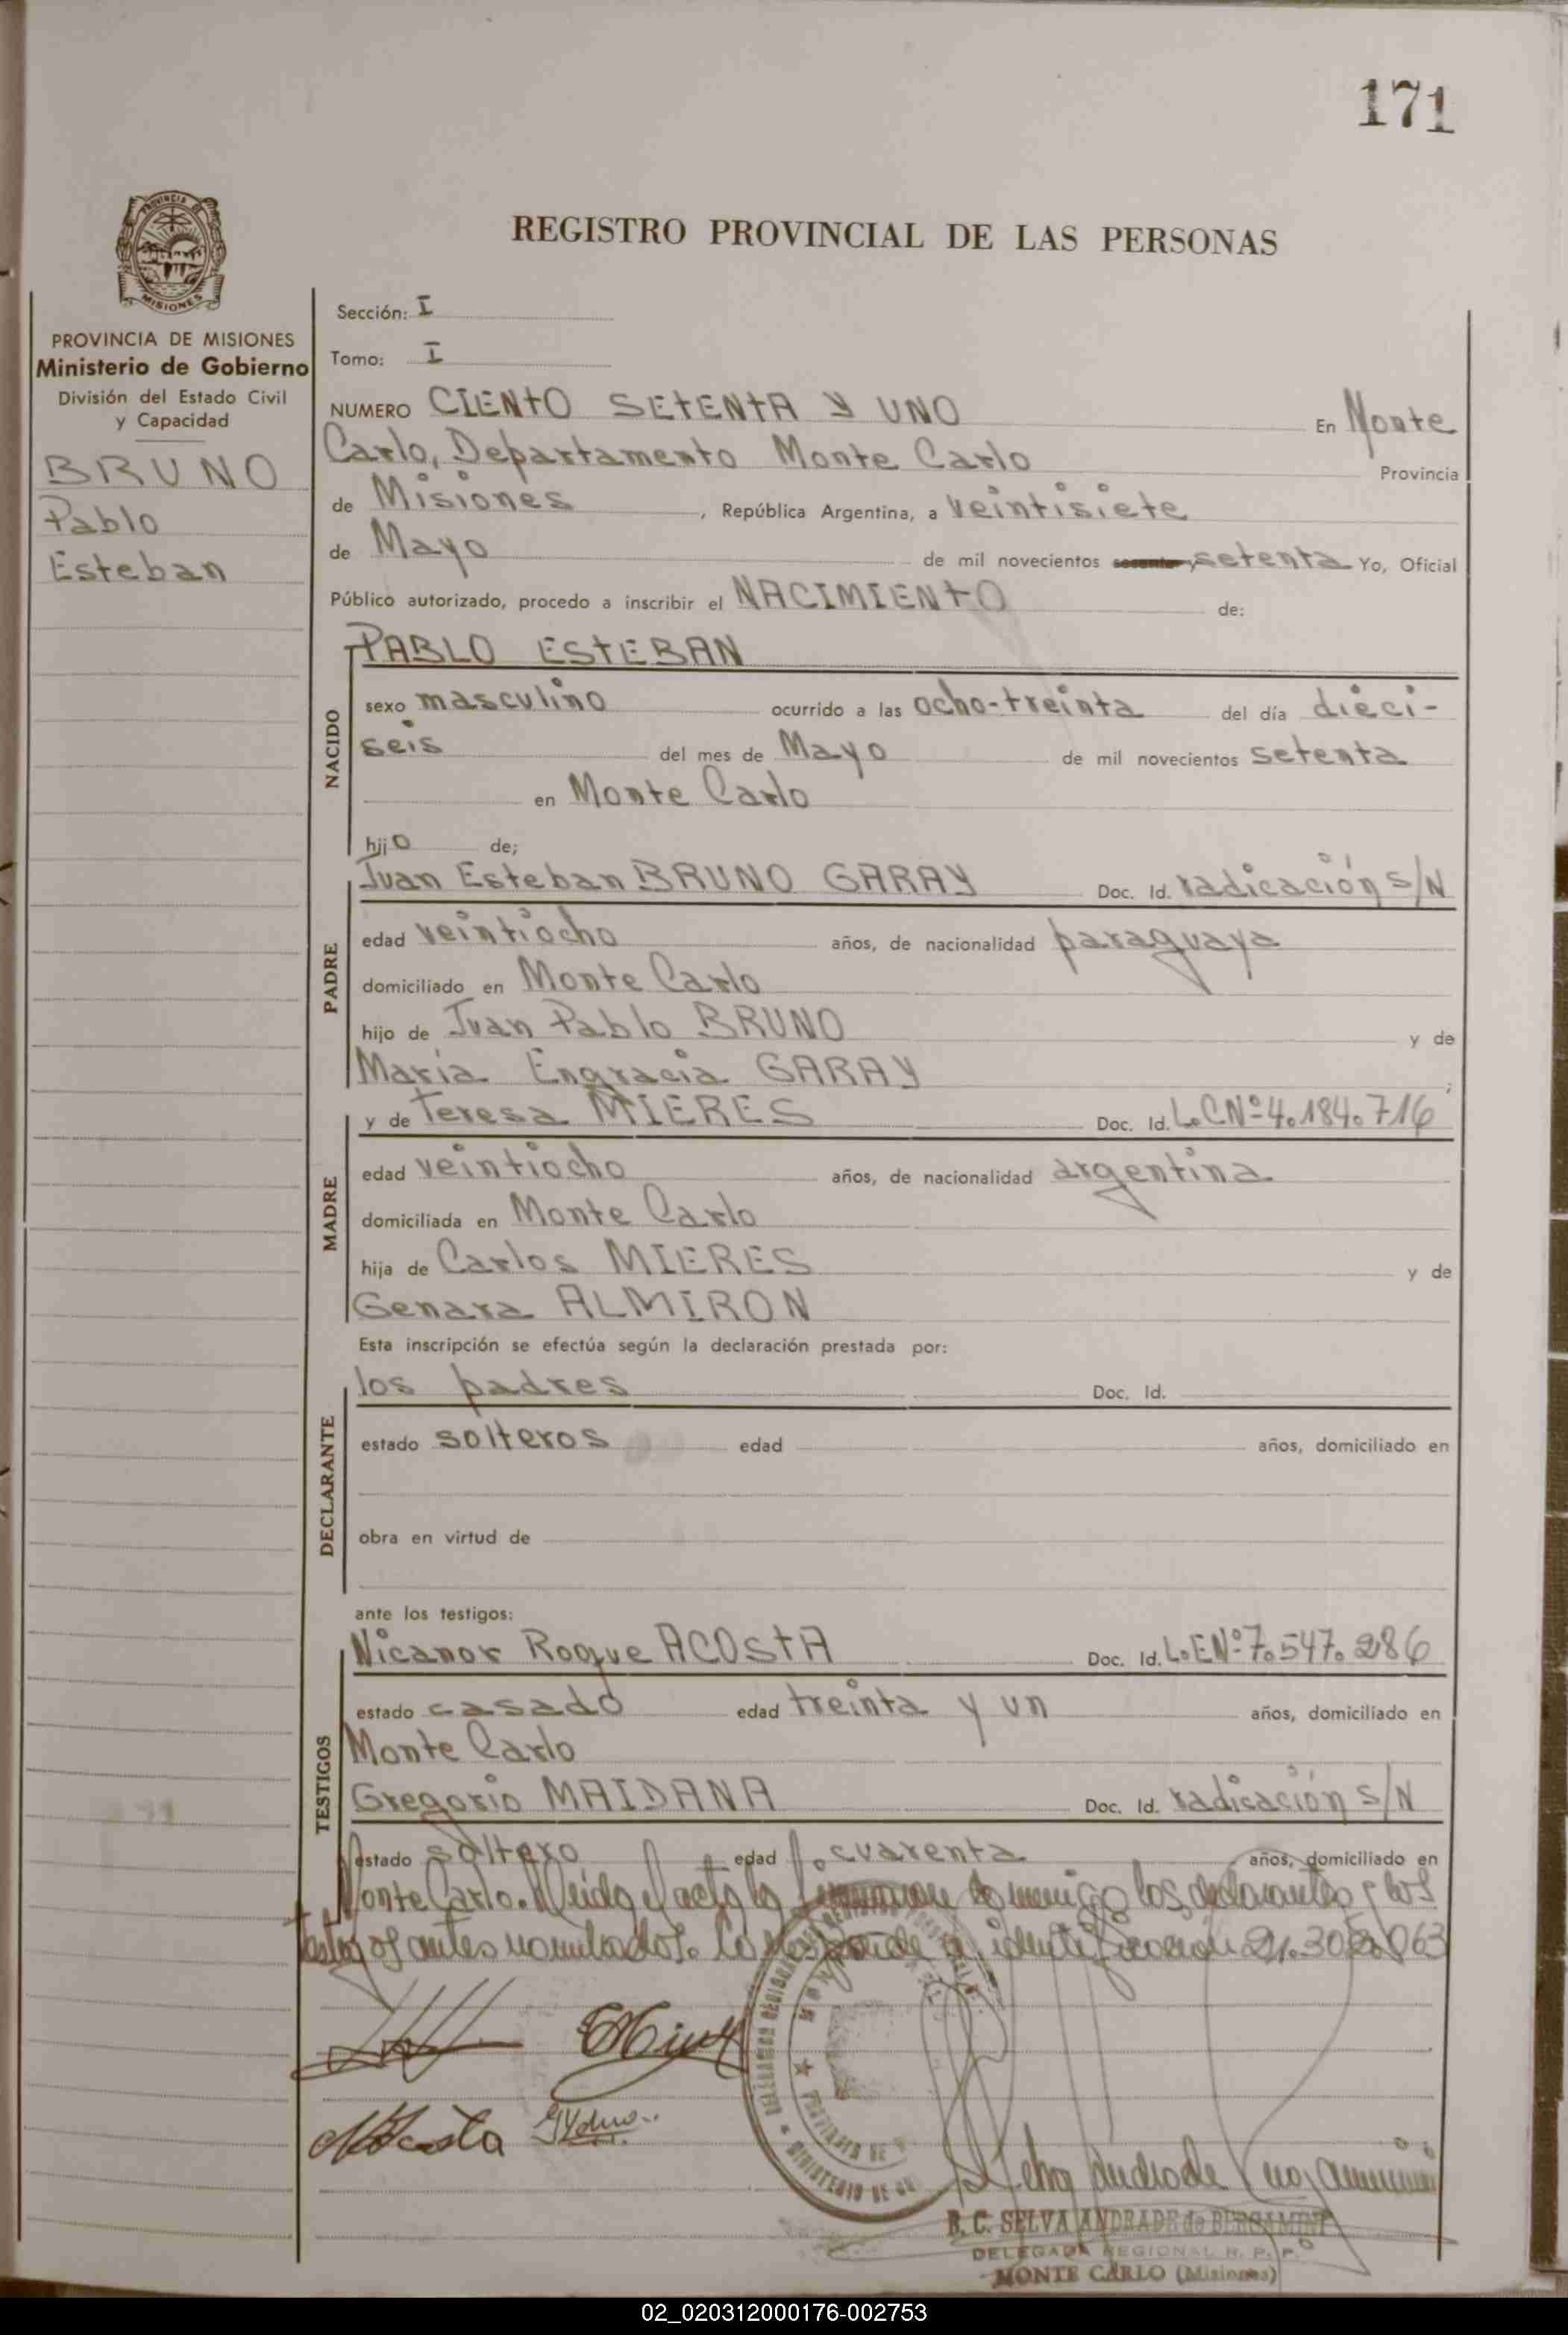 171
REGISTRO PROVINCIAL DE LAS PERSONAS
MISIONES
PROVINCIA DE MISIONES
Ministerio de Gobierno
División del Estado Civil
y Capacidad
BRUNO
Pablo
Esteban
Sección: I
Tomo: I
NUMERO CIENTO SETENTA Y UNO En Monte
Carlo, Departamento Monte Carlo Provincia
de Misiones, República Argentina, a veintisiete
de Mayo de mil novecientos setenta Yo, Oficial
Público autorizado, procedo a inscribir el NACIMIENTO de:
NACIDO
PABLO ESTEBAN
sexo masculino ocurrido a las ocho-treinta del día dieci-
seis del mes de Mayo de mil novecientos setenta
en Monte Carlo
hijo de;
PADRE
Juan Esteban BRUNO GARAY Doc. Id. radicación S/N
edad veintiocho años, de nacionalidad paraguaya
domiciliado en Monte Carlo
hijo de Juan Pablo BRUNO y de
María Engracia GARAY;
MADRE
y de Teresa MIERES Doc. Id. L.C Nº 4.184.716
edad veintiocho años, de nacionalidad argentina
domiciliada en Monte Carlo
hija de Carlos MIERES y de
Genara ALMIRON
Esta inscripción se efectúa según la declaración prestada por:
DECLARANTE
los padres Doc. Id.
estado solteros edad años, domiciliado en
obra en virtud de
ante los testigos:
TESTIGOS
Nicanor Roque ACOSTA Doc. Id. L.E Nº 7.547.286
estado casado edad treinta y un años, domiciliado en
Monte Carlo
Gregorio MAIDANA Doc. Id. radicación S/N
estado soltero edad cuarenta años, domiciliado en
Monte Carlo. Leído el acta la firman conmigo los declarantes y los
testigos antes nombrados. Corresponde a identificación
NAcosta
B. C. SELVA ANDRADE de BERGAMINI
DELEGADA REGIONAL R. P. P.
MONTE CARLO (Misiones)
02_020312000176-002753